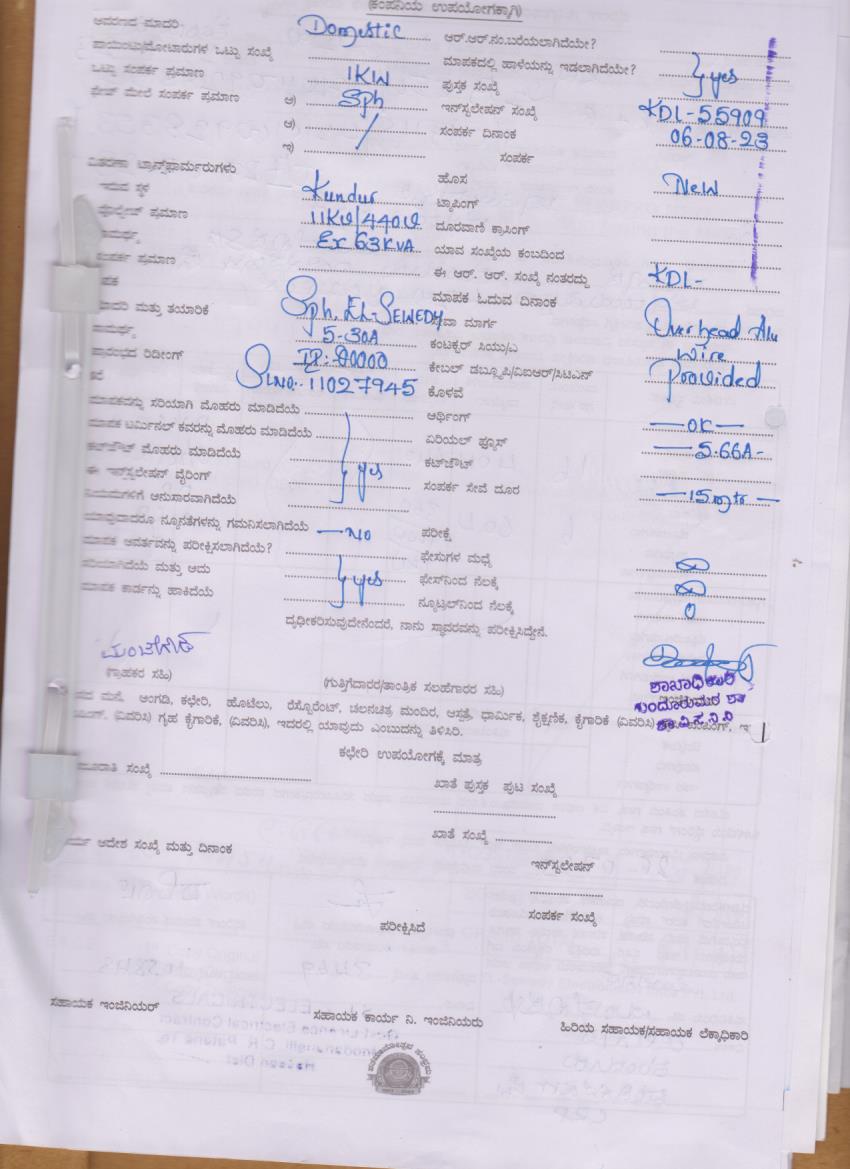 (ಕಂಪನಿಯ ಉಪಯೋಗಕ್ಕಾಗಿ)
ಆವರಣದ ಮಾದರಿ Domestic ಆರ್.ಆರ್.ನಂ.ಬರೆಯಲಾಗಿದೆಯೇ?
ಪಾಯಿಂಟು/ಮೋಟಾರುಗಳ ಒಟ್ಟು ಸಂಖ್ಯೆ ಮಾಪಕದಲ್ಲಿ ಹಾಳೆಯನ್ನು ಇಡಲಾಗಿದೆಯೇ? yes
ಒಟ್ಟು ಸಂಪರ್ಕ ಪ್ರಮಾಣ 1KW ಪುಸ್ತಕ ಸಂಖ್ಯೆ
ಫೇಜ್ ಮೇಲೆ ಸಂಪರ್ಕ ಪ್ರಮಾಣ ಅ) Sph ಇನ್‌ಸ್ಟಲೇಷನ್ ಸಂಖ್ಯೆ KDL-55909
ಆ) ಸಂಪರ್ಕ ದಿನಾಂಕ 06-08-23
ಇ) ಸಂಪರ್ಕ
ವಿತರಣಾ ಟ್ರಾನ್ಸ್‌ಫಾರ್ಮರುಗಳು ಹೊಸ New
ಇರುವ ಸ್ಥಳ Kundur ಟ್ಯಾಪಿಂಗ್
ವೋಲ್ಟೇಜ್ ಪ್ರಮಾಣ 11KV/440V ದೂರವಾಣಿ ಕ್ರಾಸಿಂಗ್
ಸಾಮರ್ಥ್ಯ Ex 63KVA ಯಾವ ಸಂಖ್ಯೆಯ ಕಂಬದಿಂದ
ಸಂಪರ್ಕ ಪ್ರಮಾಣ ಈ ಆರ್. ಆರ್. ಸಂಖ್ಯೆ ನಂತರದ್ದು KDL-
ಪಕ ಮಾಪಕ ಓದುವ ದಿನಾಂಕ
ಮಾದರಿ ಮತ್ತು ತಯಾರಿಕೆ Sph, EL-SEWEDY ಸೇವಾ ಮಾರ್ಗ Overhead Alu
ಸಾಮರ್ಥ್ಯ 5-30A ಕಂಟಕ್ಟರ್ ಸಿಯು/ಎ Wire
ಪ್ರಾರಂಭದ ರಿಡೀಂಗ್ IR:00000 ಕೇಬಲ್ ಡಬ್ಲ್ಯೂಪಿ/ವಿಐಆರ್/ಸಿಟಿಎಸ್ Provided
SlNo:-11027945 ಕೊಳವೆ
ಮಾಪಕವನ್ನು ಸರಿಯಾಗಿ ಮೊಹರು ಮಾಡಿದೆಯೆ ಆರ್ಥಿಂಗ್ -OK-
ಮಾಪಕ ಟರ್ಮಿನಲ್ ಕವರನ್ನು ಮೊಹರು ಮಾಡಿದೆಯೆ ಏರಿಯಲ್ ಫ್ಯೂಸ್ -5.66A-
ಕಟ್‌ಔಟ್ ಮೊಹರು ಮಾಡಿದೆಯೆ yes ಕಟ್‌ಔಟ್
ಈ ಇನ್‌ಸ್ಟಲೇಷನ್ ವೈರಿಂಗ್ ಸಂಪರ್ಕ ಸೇವೆ ದೂರ -15mtr-
ನಿಯಮಗಳಿಗೆ ಅನುಸಾರವಾಗಿದೆಯೆ
ಯಾವುದಾದರೂ ನ್ಯೂನತೆಗಳನ್ನು ಗಮನಿಸಲಾಗಿದೆಯೆ -No ಪರೀಕ್ಷೆ
ಮಾಪಕ ಆವರ್ತವನ್ನು ಪರೀಕ್ಷಿಸಲಾಗಿದೆಯೆ? ಫೇಸುಗಳ ಮಧ್ಯೆ ∞
ಸರಿಯಾಗಿದೆಯೆ ಮತ್ತು ಅದು yes ಫೇಸ್‌ನಿಂದ ನೆಲಕ್ಕೆ ∞
ಮಾಪಕ ಕಾರ್ಡನ್ನು ಹಾಕಿದೆಯೆ ನ್ಯೂಟ್ರಲ್‌ನಿಂದ ನೆಲಕ್ಕೆ 0
ದೃಢೀಕರಿಸುವುದೇನೆಂದರೆ, ನಾನು ಸ್ಥಾವರವನ್ನು ಪರೀಕ್ಷಿಸಿದ್ದೇನೆ.
(ಗ್ರಾಹಕರ ಸಹಿ) (ಗುತ್ತಿಗೆದಾರರ/ತಾಂತ್ರಿಕ ಸಲಹೆಗಾರರ ಸಹಿ) ಶಾಖಾಧಿಕಾರಿ
ಮನೆ, ಅಂಗಡಿ, ಕಛೇರಿ, ಹೊಟೆಲು, ರೆಸ್ಟೊರೆಂಟ್, ಚಲನಚಿತ್ರ ಮಂದಿರ, ಆಸ್ಪತ್ರೆ, ಧಾರ್ಮಿಕ, ಶೈಕ್ಷಣಿಕ, ಕೈಗಾರಿಕೆ (ವಿವರಿಸಿ)
(ವಿವರಿಸಿ) ಗೃಹ ಕೈಗಾರಿಕೆ, (ವಿವರಿಸಿ), ಇದರಲ್ಲಿ ಯಾವುದು ಎಂಬುದನ್ನು ತಿಳಿಸಿರಿ.
ಕಛೇರಿ ಉಪಯೋಗಕ್ಕೆ ಮಾತ್ರ
ಸಂಖ್ಯೆ ಖಾತೆ ಪುಸ್ತಕ ಪುಟ ಸಂಖ್ಯೆ
ಖಾತೆ ಸಂಖ್ಯೆ
ಆದೇಶ ಸಂಖ್ಯೆ ಮತ್ತು ದಿನಾಂಕ
ಇನ್‌ಸ್ಟಲೇಷನ್
ಸಂಪರ್ಕ ಸಂಖ್ಯೆ
ಪರೀಕ್ಷಿಸಿದೆ
ಸಹಾಯಕ ಇಂಜಿನಿಯರ್ ಸಹಾಯಕ ಕಾರ್ಯ ನಿ. ಇಂಜಿನಿಯರು ಹಿರಿಯ ಸಹಾಯಕ/ಸಹಾಯಕ ಲೆಕ್ಕಾಧಿಕಾರಿ